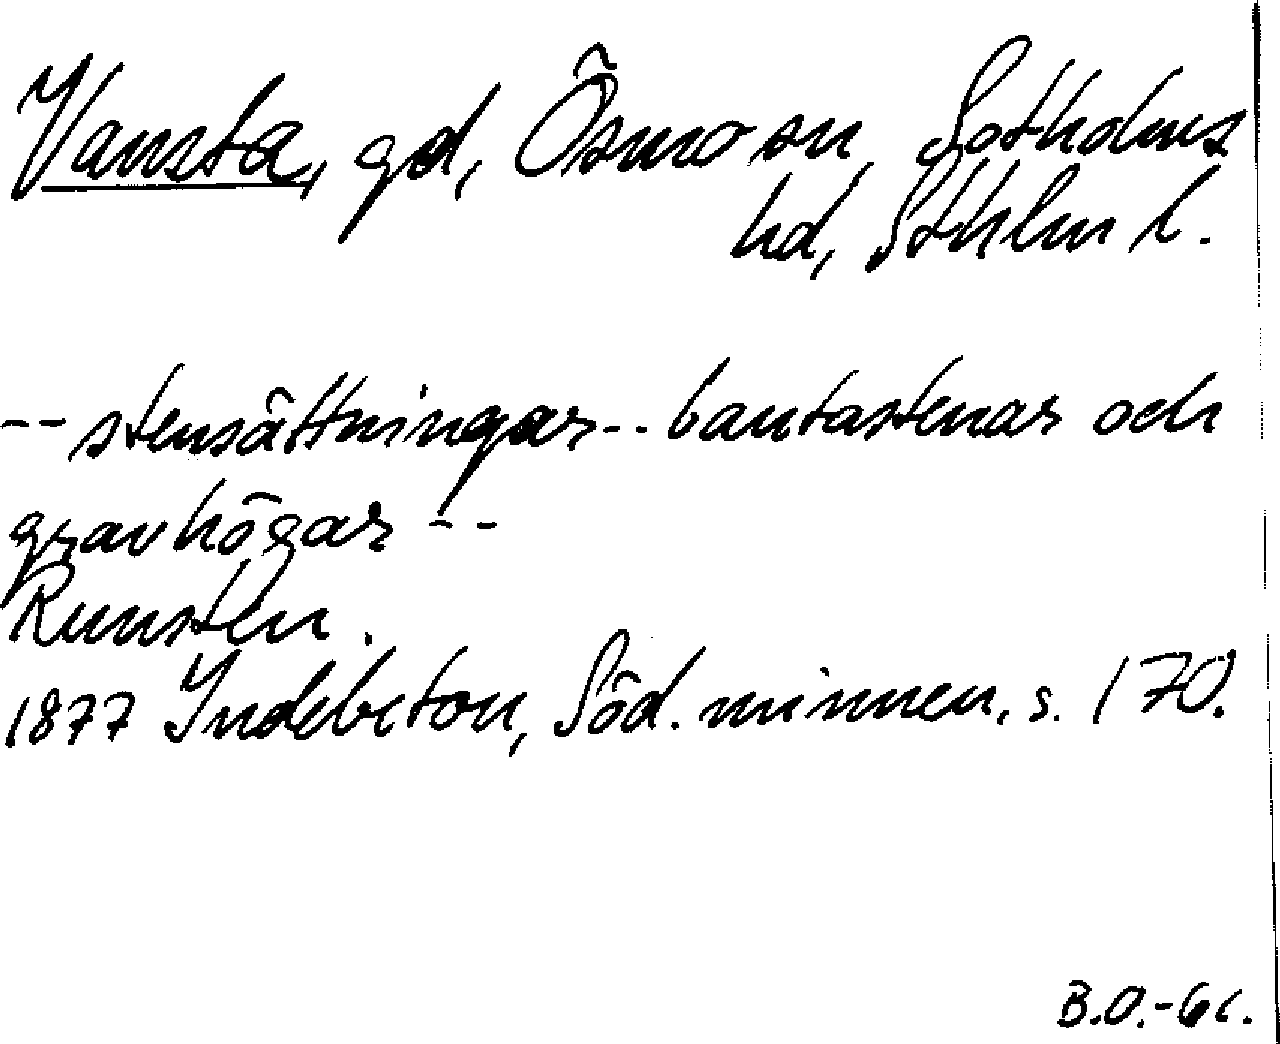 Vansta, gd, Ösmo sn, Sotholms
hd, Sthlm l.
-- stensättningar -- bautastenar och
gravhögar --
Runsten.
1877 Indebetou, Söd. minnen, s. 170.
B.O.-61.